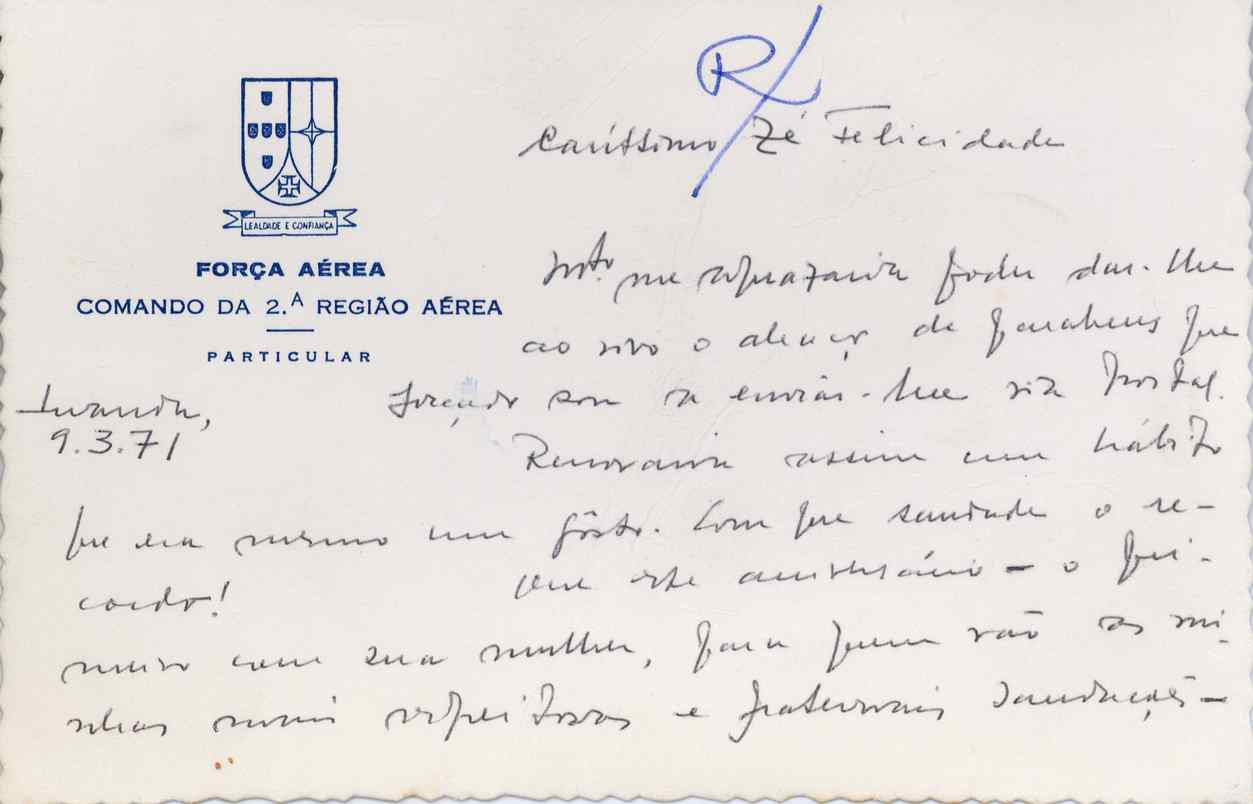 R/
Caríssimo Zé Felicidade
LEALDADE E CONFIANÇA
FORÇA AÉREA
COMANDO DA 2.ª REGIÃO AÉREA
PARTICULAR
Luanda,
9.3.71
Mto. me aprazaria poder dar-lhe
ao vivo o abraço de parabens que
forçado sou a enviar-lhe via postal.
Renovaria assim um hábito
que era mesmo um gôsto. Com que saudade o re-
cordo!
Que este aniversário - o pri-
meiro com sua mulher, para quem vão as mi-
nhas mais respeitosas e fraternais saudações -